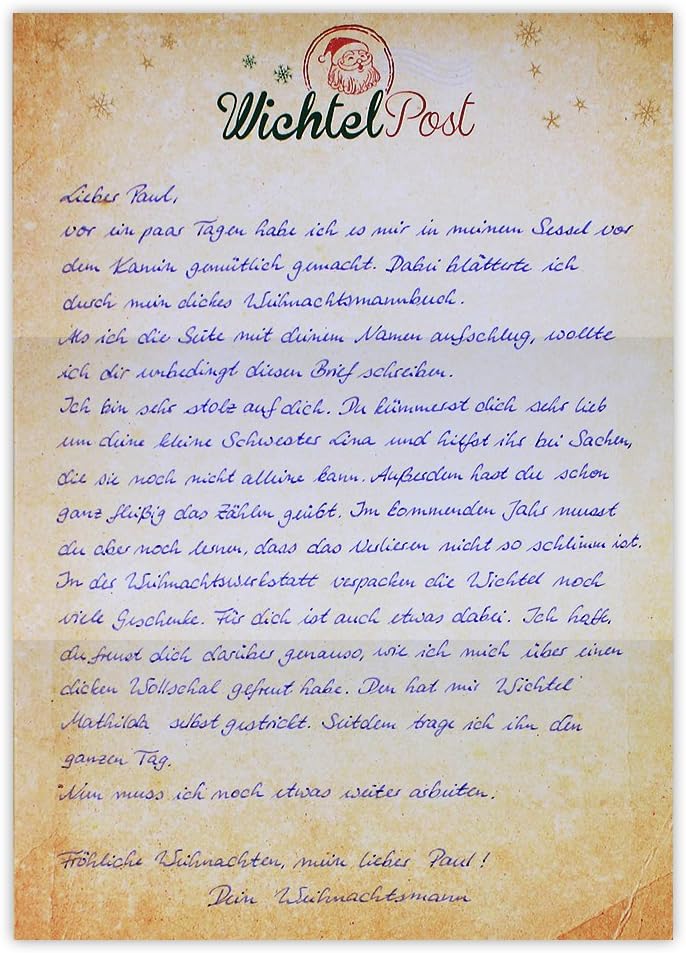 WichtelPost
Lieber Paul,
vor ein paar Tagen habe ich es mir in meinem Sessel vor
dem Kamin gemütlich gemacht. Dabei blätterte ich
durch mein dickes Weihnachtsmannbuch.
Als ich die Seite mit deinem Namen aufschlug, wollte
ich dir unbedingt diesen Brief schreiben.
Ich bin sehr stolz auf dich. Du kümmerst dich sehr lieb
um deine kleine Schwester Lina und hilfst ihr bei Sachen,
die sie noch nicht alleine kann. Außerdem hast du schon
ganz fleißig das Zählen geübt. Im kommenden Jahr musst
du aber noch lernen, dass das Verlieren nicht so schlimm ist.
In der Weihnachtswerkstatt verpacken die Wichtel noch
viele Geschenke. Für dich ist auch etwas dabei. Ich hoffe,
du freust dich darüber genauso, wie ich mich über einen
dicken Wollschal gefreut habe. Den hat mir Wichtel
Mathilda selbst gestrickt. Seitdem trage ich ihn den
ganzen Tag.
Nun muss ich noch etwas weiter arbeiten.
Fröhliche Weihnachten, mein lieber Paul!
Dein Weihnachtsmann